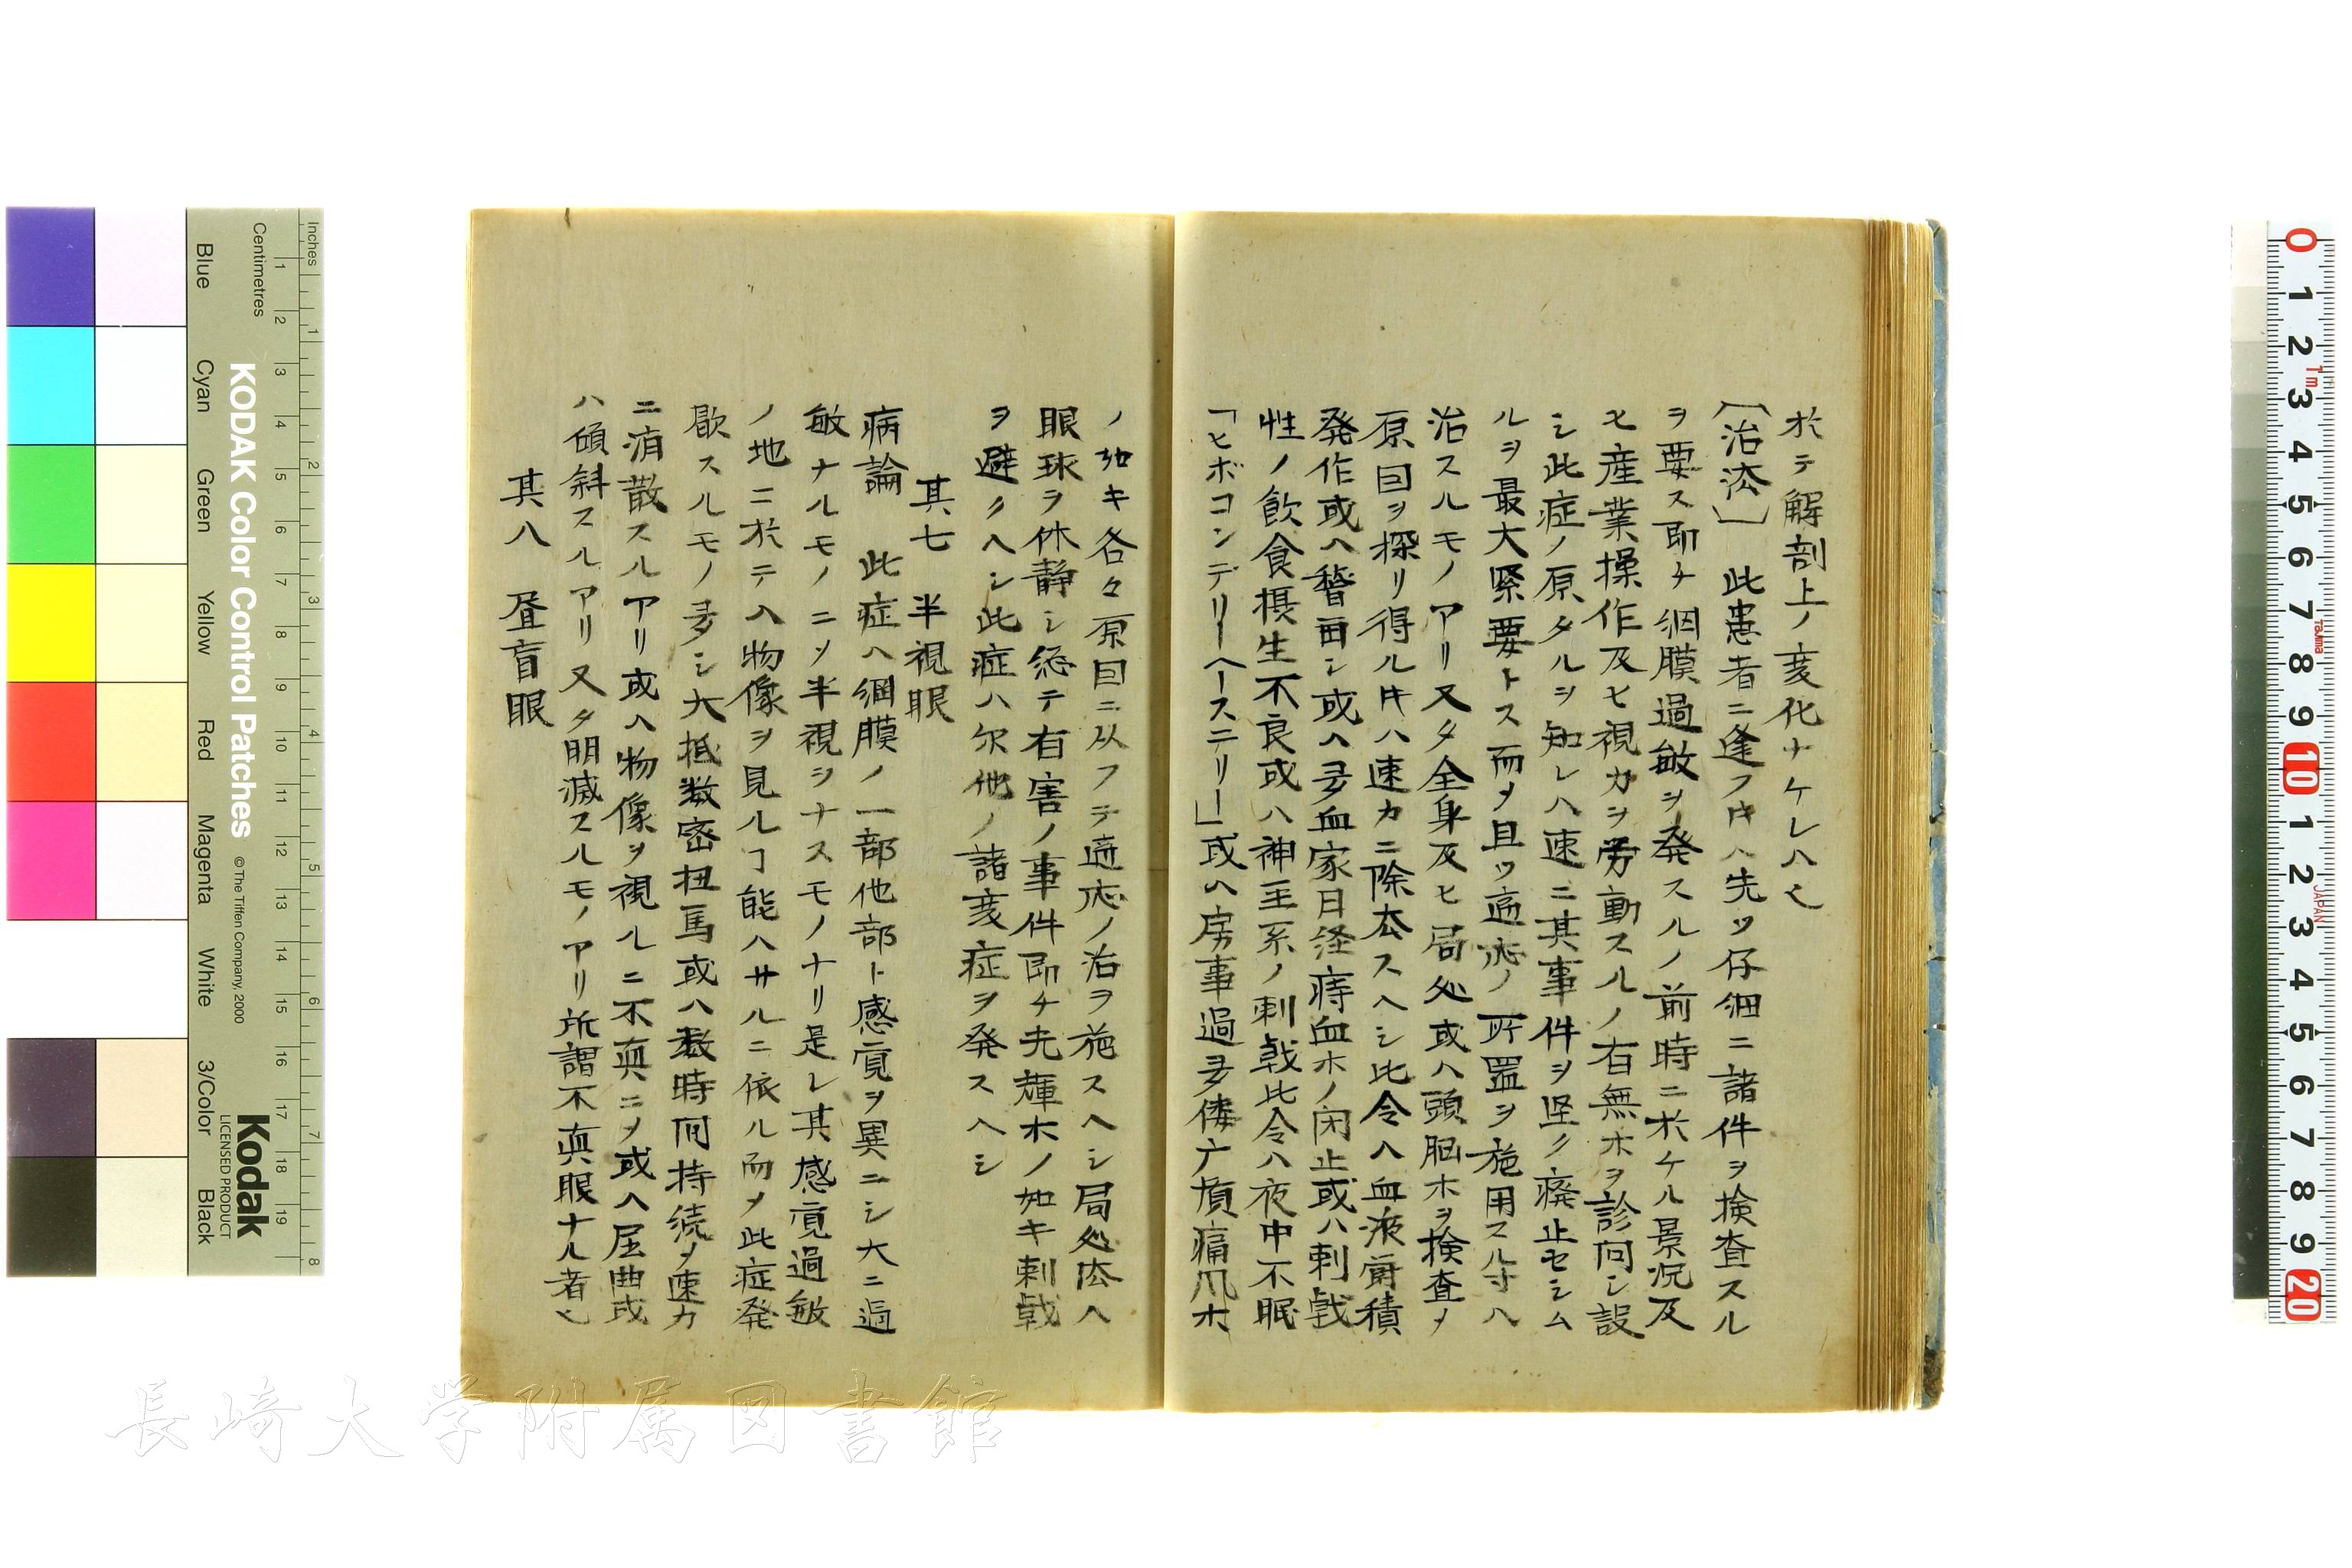 於テ解剖上ノ変化ナケレハ也
〔治法〕 此患者ニ逢フ𪜈ハ先ツ仔細ニ諸件ヲ検査スル
ヲ要ス即チ網膜過敏ヲ発スルノ前時ニ於ケル景況及
ヒ産業操作及ヒ視力ヲ労動スルノ有無ホヲ診問シ設
シ此症ノ原タルヲ知レハ速ニ其事件ヲ堅ク廃止セシム
ルヲ最大緊要トス而ヲ且ツ適応ノ所置ヲ施用スル寸ハ
治スルモノアリ又タ全身及ヒ局処或ハ頭脳ホヲ検査ノ
原因ヲ探リ得ル𪜈ハ速カニ除去スヘシ比令ヘ血液欝積
発作或ヘ瞀面シ或ヘ多血家日経痔血ホノ閉止或ハ刺戟
性ノ飲食摂生不良或ハ神圣系ノ刺戟比令ハ夜中不眠
「ヒボコンデリーヘースニリー」或ハ房事過多偻亡損痛爪ホ
ノ如キ各々原因ニ从フテ適応ノ治ヲ施スヘシ局処法ハ
眼球ヲ休静シ総テ有害ノ事件即チ光輝ホノ如キ刺戟
ヲ避クヘシ此症ハ尓他ノ諸変症ヲ発スヘシ
其七 半視眼
病論 此症ヘ網膜ノ一部他部ト感覚ヲ異ニシ大ニ過
敏ナルモノニヲ半視ヲナスモノナリ是レ其感覚過敏
ノ地ニ於テヘ物像ヲ見ルヿ能ハサルニ依ル而ヲ此症発
歇スルモノ多シ大抵数密扭馬或ハ数時間持続ヲ速カ
ニ消散スルアリ或ヘ物像ヲ視ルニ不真ニヲ或ヘ屈曲或
ハ傾斜スルアリ又タ明滅スルモノアリ所謂不真眼ナル者也
其八 昼盲眼
Inches
Centimetres
KODAK Color Control Patches
© The Tiffen Company, 2000
Kodak
LICENSED PRODUCT
Blue Cyan Green Yellow Red Magenta White 3/Color Black
1 2 3 4 5 6 7 8 9 10 11 12 13 14 15 16 17 18 19
1 2 3 4 5 6 7 8
0 1 2 3 4 5 6 7 8 9 10 1 2 3 4 5 6 7 8 9 20
1m
Tajima
JAPAN
長崎大学附属図書館